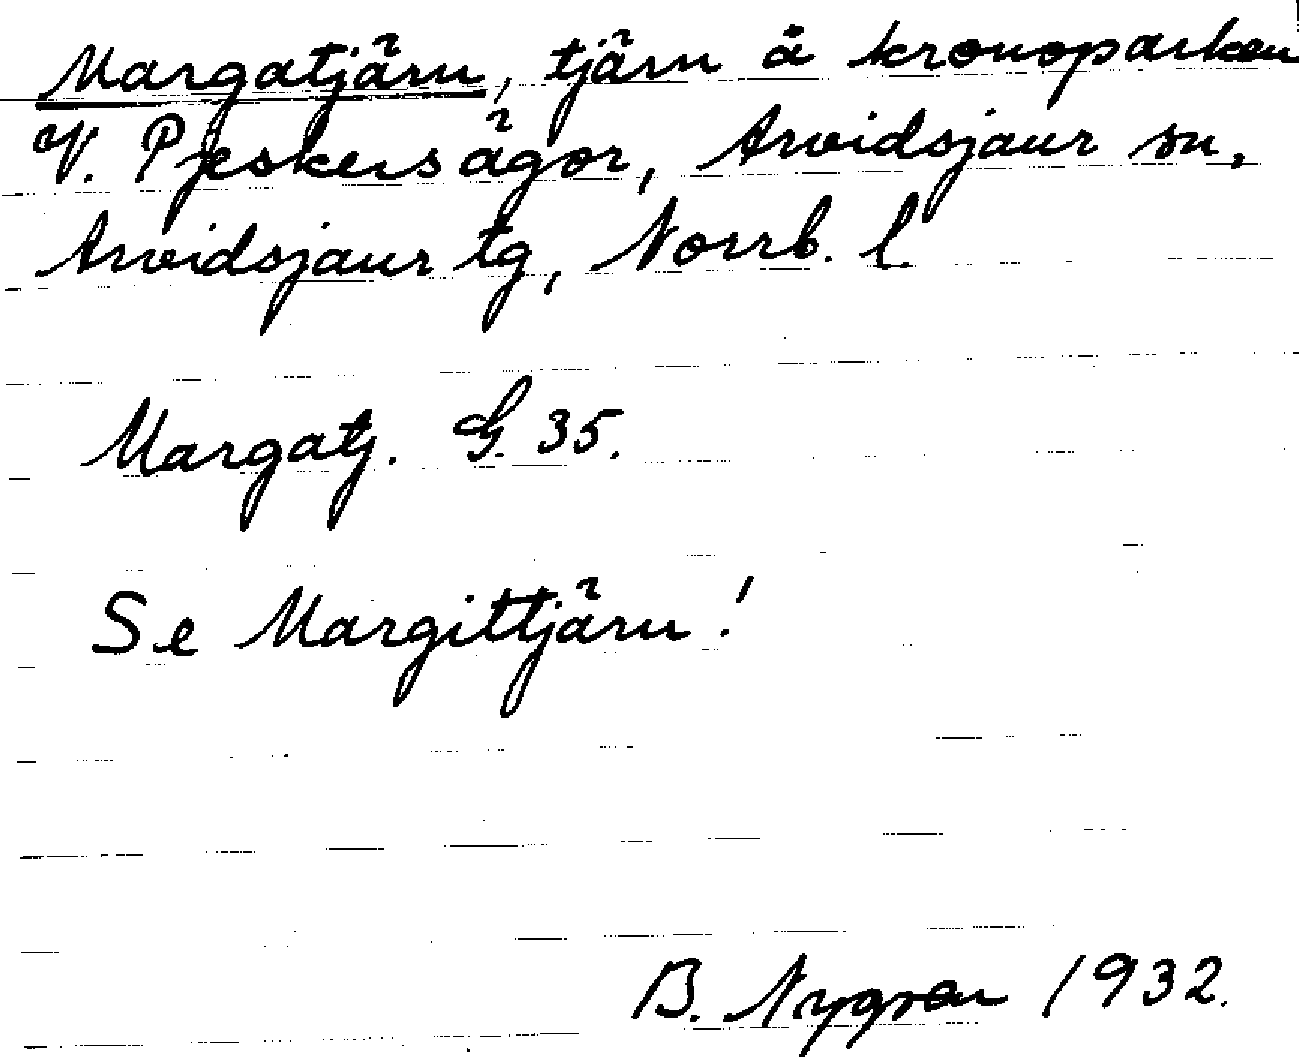 Margatjärn, tjärn å kronoparken
V. Pjeskers ägor, Arvidsjaur sn,
Arvidsjaur tg, Norrb. l
Margatj. G. 35.
Se Margittjärn!
B. Nygren 1932.